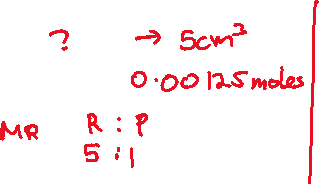 ? → 5cm³
0.00125 moles
MR R : P
5 : 1